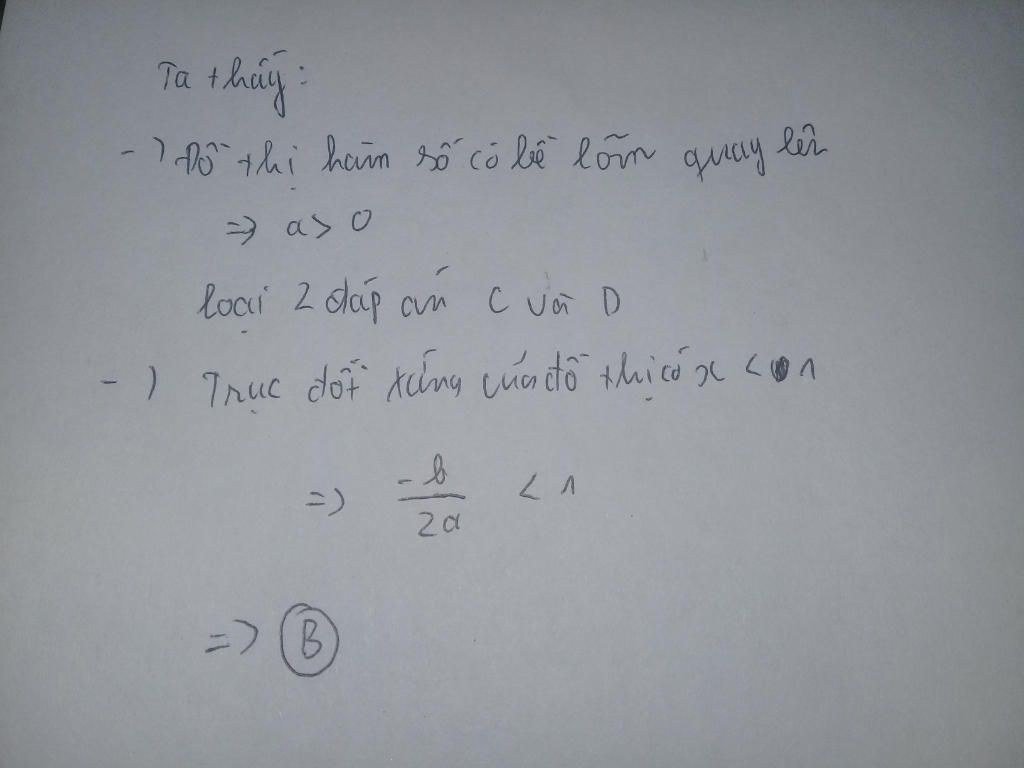 Ta thấy:
-) Đồ thị hàm số có bề lõm quay lên
=> a > 0
loại 2 đáp án C và D
-) Trục đối xứng của đồ thị có x < 1
=> -b/2a < 1
=> B